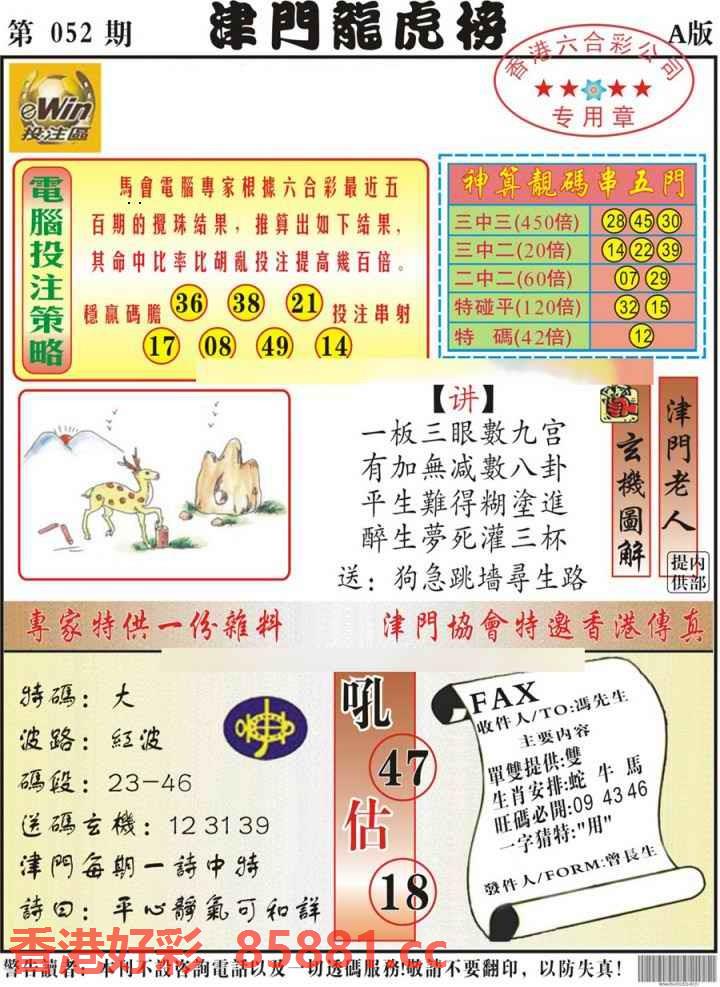 第 052 期
津門龍虎榜
A版
香港六合彩公司
專用章
eWin
投注區
電腦投注策略
馬會電腦專家根據六合彩最近五
百期的攪珠結果，推算出如下結果，
其命中比率比胡亂投注提高幾百倍。
穩贏碼膽 36 38 21 投注串射
17 08 49 14
神算靚碼串五門
三中三(450倍) 28 45 30
三中二(20倍) 14 22 39
二中二(60倍) 07 29
特碰平(120倍) 32 15
特 碼(42倍) 12
【讲】
一板三眼數九宫
有加無减數八卦
平生難得糊塗進
醉生夢死灌三杯
送：狗急跳墙尋生路
玄機圖解
津門老人
内部提供
專家特供一份雜料
津門協會特邀香港傳真
特碼：大
波路：紅波
碼段：23-46
送碼玄機：12 31 39
津門每期一詩中特
詩曰：平心靜氣可和詳
吼
47
估
18
FAX
收件人/TO:馮先生
主要内容
單雙提供:雙
生肖安排:蛇 牛 馬
旺碼必開:09 43 46
一字猜特:"用"
發件人/FORM:曾長生
香港好彩 85881.cc
警告讀者：本刊不設咨詢電話以及一切透碼服務!敬請不要翻印，以防失真!